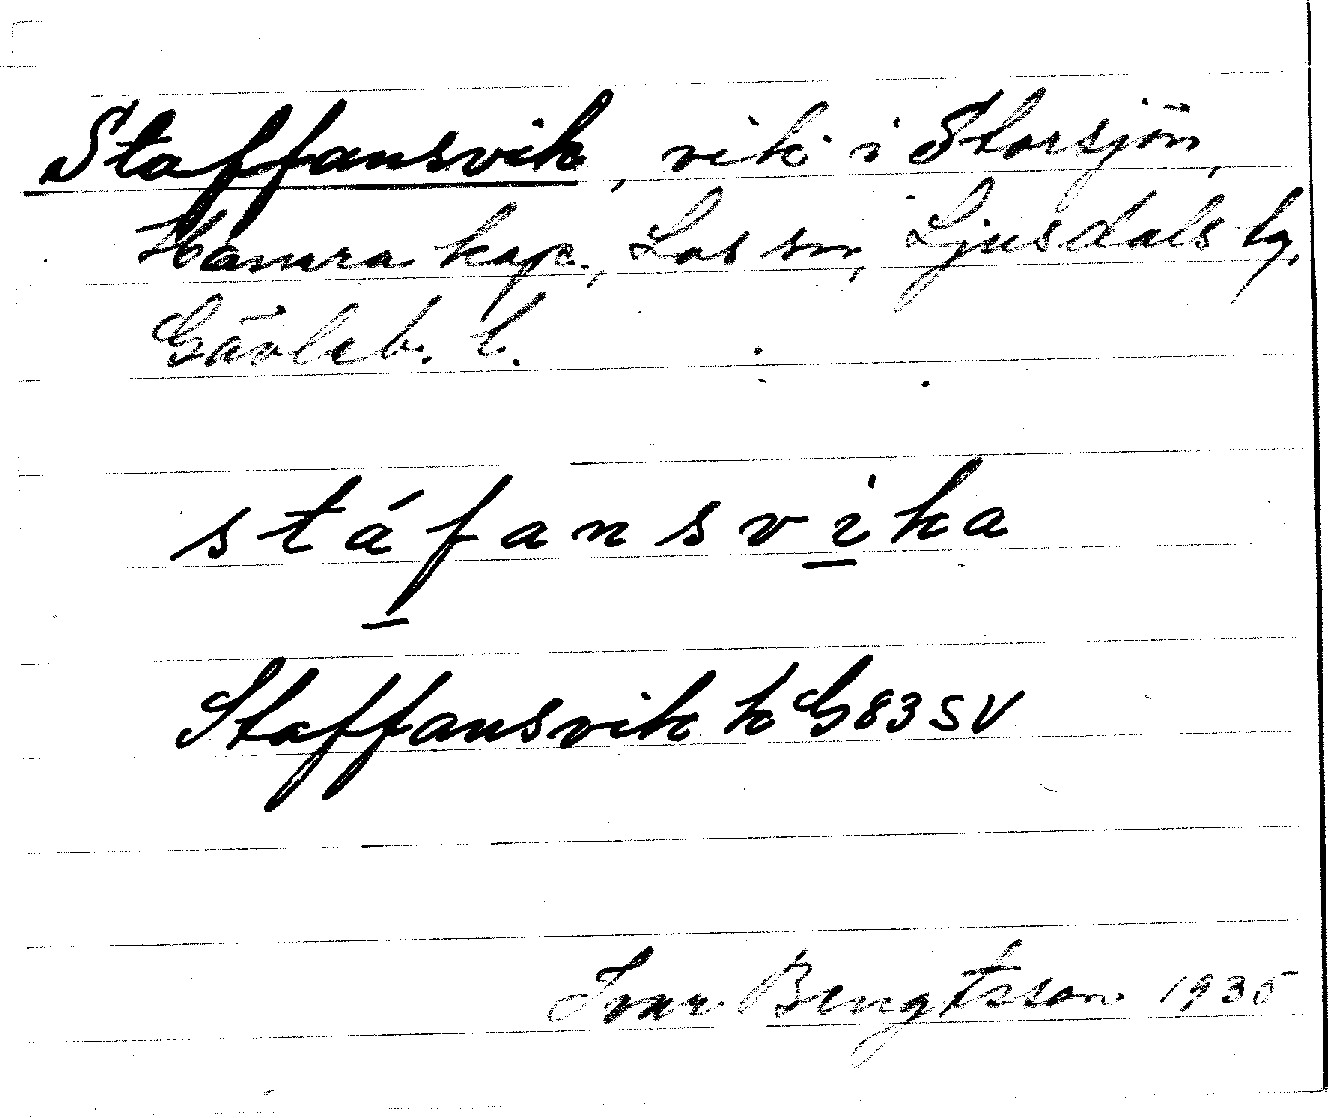 Staffansvik, vik i Storsjön,
Hamra kap., Los sn, Ljusdals tg,
Gävleb. l.
stáfansvika
Staffansvik k G 83 SV
Ivar Bengtsson 1935